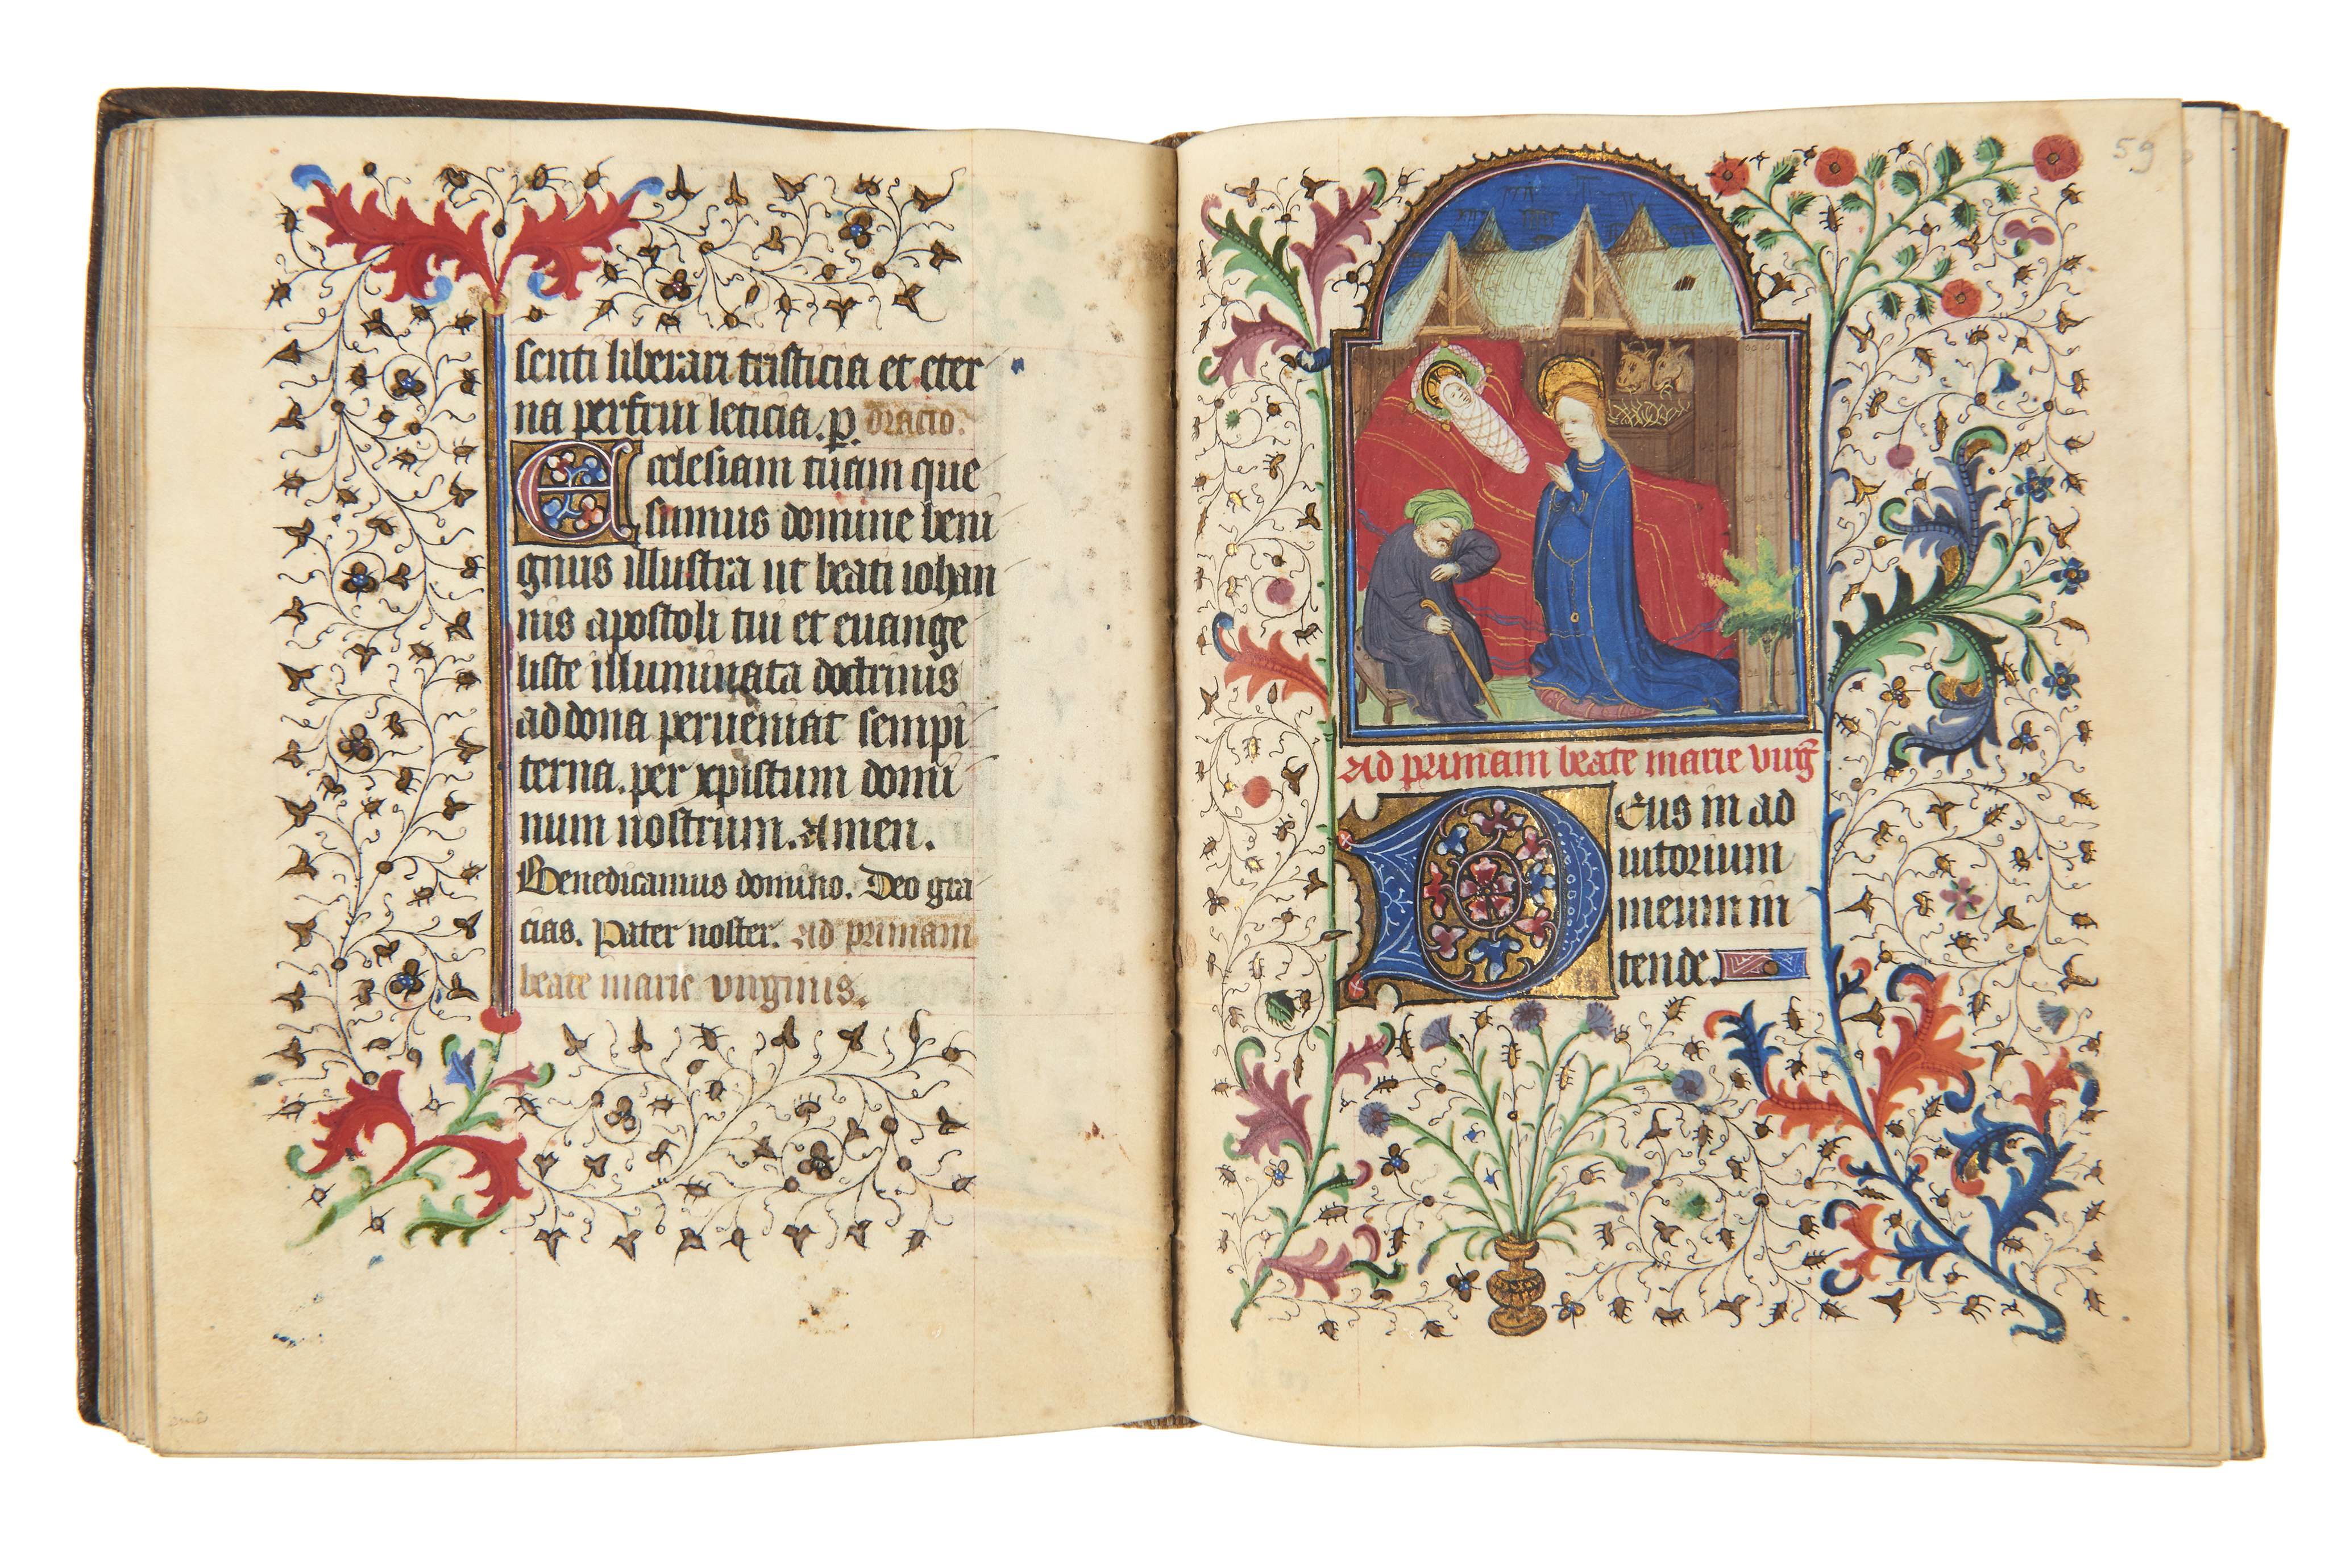 senti liberari tristicia et eter
na perfrui leticia. p. Oracio.
Ecclesiam tuam que
sumus domine beni
gnus illustra ut beati iohan
nis apostoli tui et euange
liste illuminata doctrinis
ad dona perueniat sempi
terna. per xpistum domi
num nostrum. Amen.
Benedicamus domino. Deo gra
cias. Pater noster. Ad primam
beate marie virginis.
59
Ad primam beate marie virg
Deus in ad
iutorium
meum in
tende.